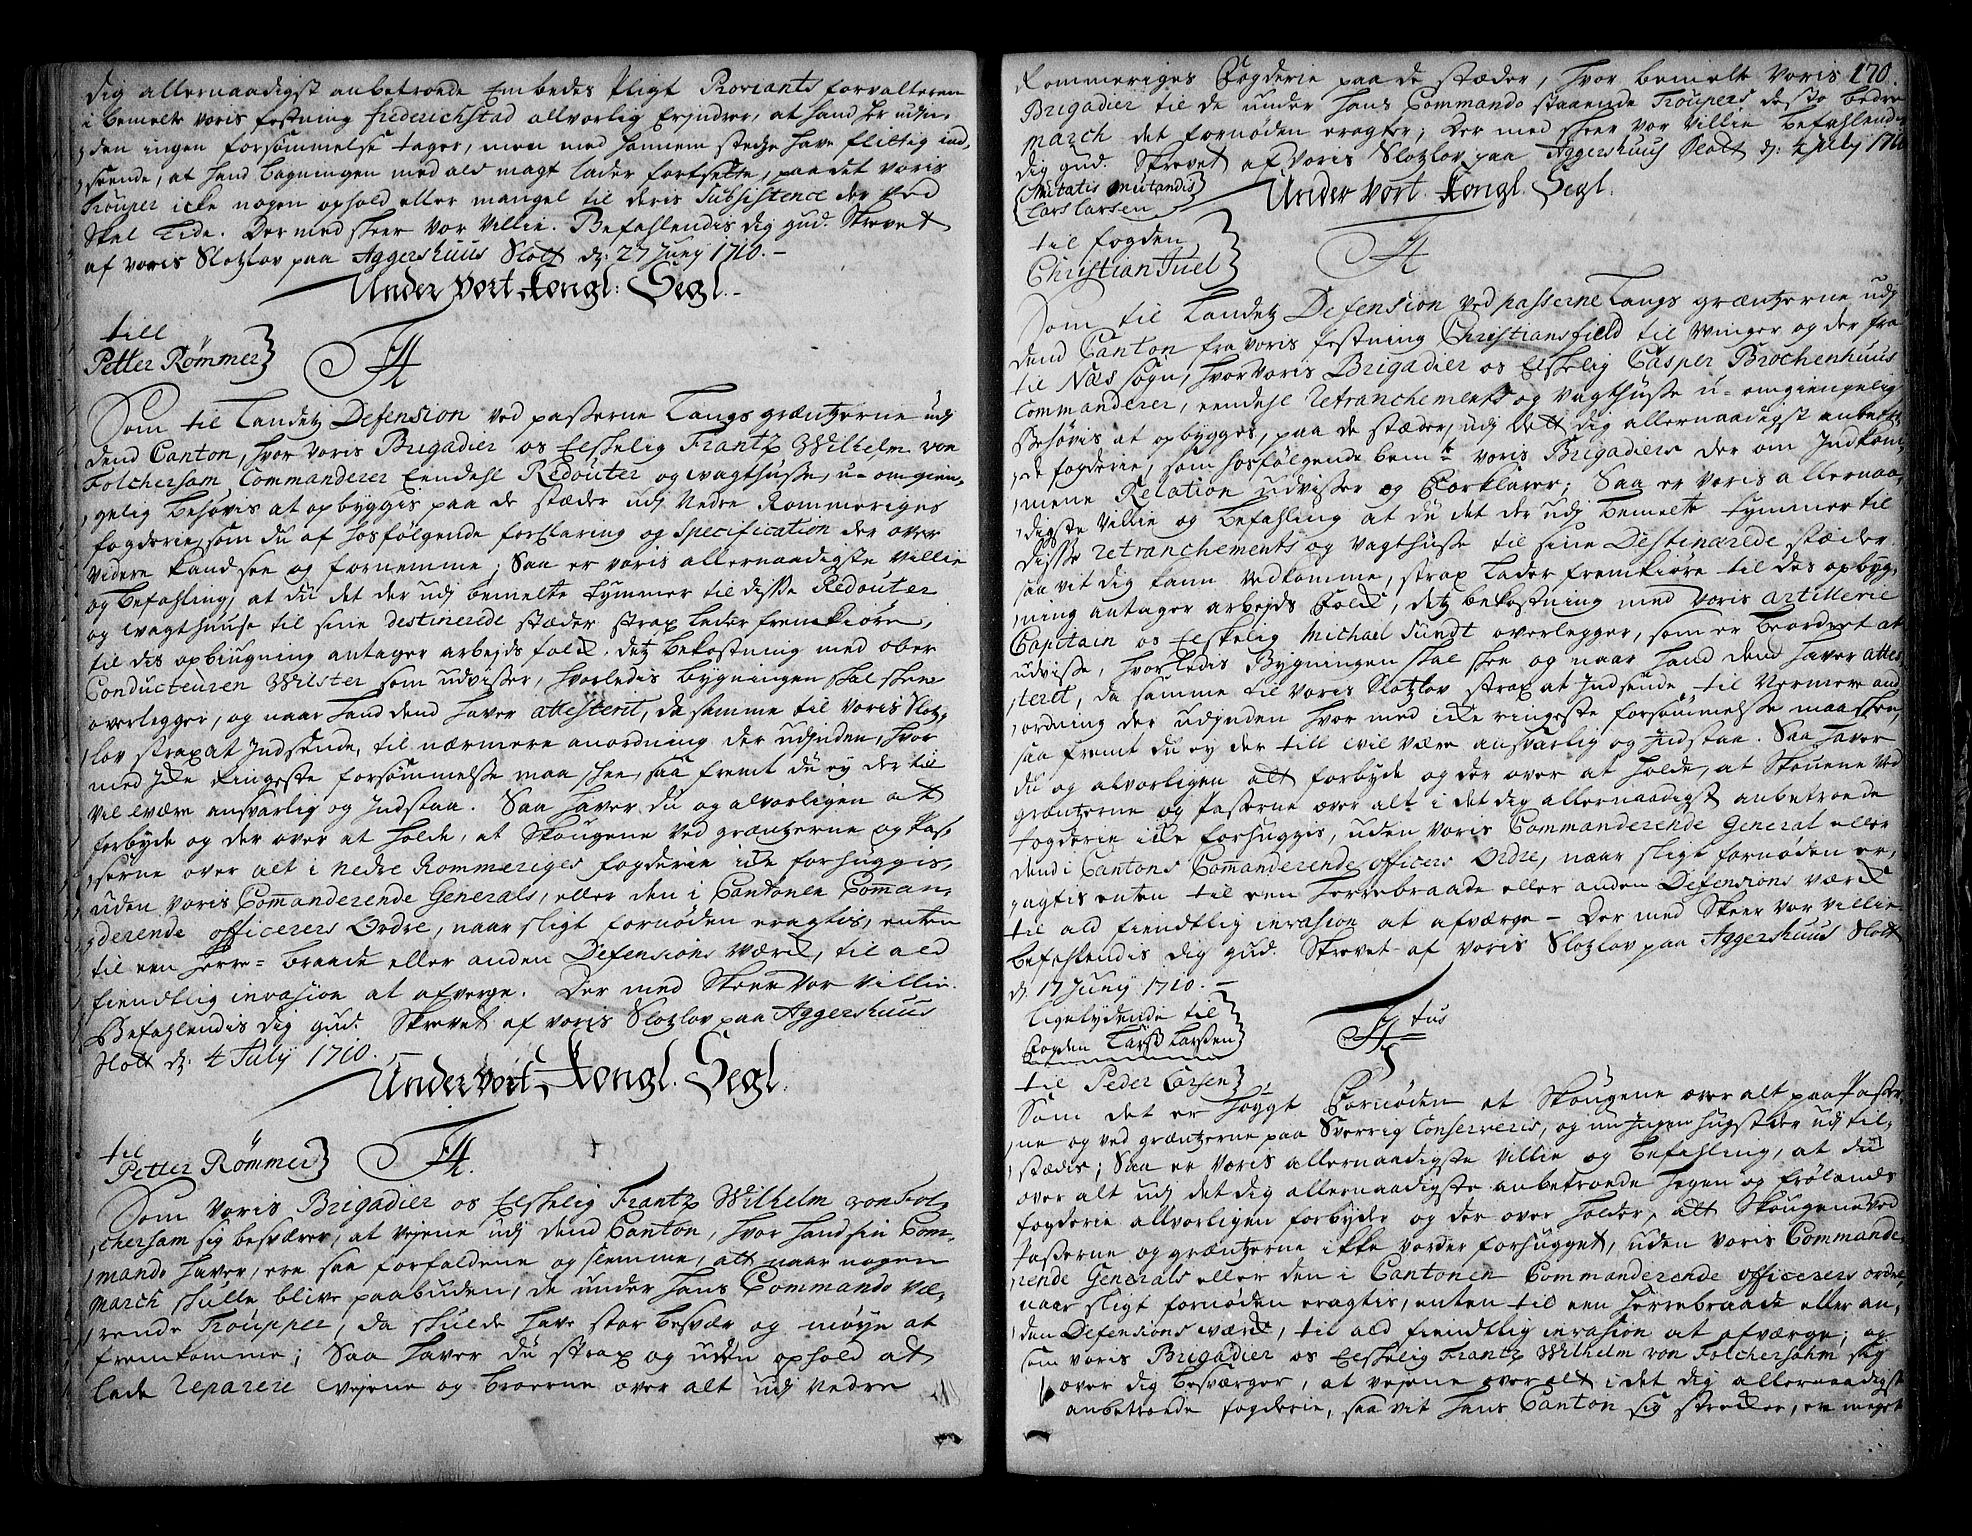 dig allernaadigst anbetroede Embedes Pligt Proviants forvalteren
i bemelte voris festning friderichstad allvorlig Erjndrer, at hand her udjn-
den ingen forsømmelse tager, men med hannem stedze have flittig ind-
seende, at hand bagningen med ald magt lader fortsette, paa det voris
Trouper icke nogen ophold eller mangel til deris Subsistence der ved
skal lide. Der med skeer vor villie. Befahlendis dig gud. Skrevet
af voris Slotzlov paa Aggershuus Slott dj: 27 Junj 1710.
Under vort Kongl: Segl.
till
Petter Rømmer
Som til Landetz Defension ved passerne langs græntzerne udj
dend Canton, hvor voris Brigadier os Elskelig Frantz Wilhelm von
Folchersam Commanderer Eendehl Redouter og wagthusse, u-omgien-
gelig behøvis at opbyggis paa de stæder udj Nedre Rommeriges
fogderie, som du af hosfølgende forklaring og Specification der over
videre kand see og fornemme; Saa er voris allernaadigste villie
og befahling, at du det der udj bemelte tymmer til disse Redouter
og wagthuuse til sine destinerede stæder strax lader fremkiøre,
til dis opbiugning antager arbejds folck, detz bekostning med ober
Conducteuren Wilster som udvisser, hvorledis bygningen skal skee
overlegger, og naar hand dend haver attesterit, da samme til voris Slotz-
lov strax at Jndsende, til nærmere anordning der udjnden, hvor
med Jcke Ringeste forsømmelsse maa skee, saa fremt du ey der til
vil være ansvarlig og Jndstaa. Saa haver du og alvorligen att
forbyde og der over at holde, at Skougene ved græntzerne og Pas-
serne over alt i nedre Rommeriges fogderie icke forhuggis,
uden voris Comanderende Generals, eller den i Cantonen Coman-
derende officerers Ordre, naar sligt fornøden eragtis, enten
til een herre-braade eller anden Defensions værck, til ald
fiendtlig invasion at afverge. Der med Skeer vor villie.
Befahlendis dig gud. Skrevet af voris Slotzlov paa Aggershuus
Slott dj: 4 July 1710.
Under vort Kongl. Segl.
til
Petter Rømmer
Som voris Brigadier os Elskelig Frantz Wilhelm von Fol-
chersam sig besværer, at vejene udj dend Canton, hvor hand sin Com-
mando haver, ere saa forfaldene og slemme, att naar nogen
March skulle blive paabuden, de under hans Commando væ-
rende Trouppee, da skulde have stor besvær og møye at
fremkomme; Saa haver du strax og uden ophold at
lade reparere vejene og broerne over alt udj Nedre
Rommeriges Fogderie paa de stæder, hvor bemelte voris 170.
Brigadier til de under hans Commando staaende Troupers desto bedre
March det fornøden eragter; Der med skeer vor villie befahlendis
dig gud. Skrevet af voris Slotzlov paa Aggershuus Slott dj: 4 July 1710
Mutatis mutandis
Lars Larsen
Under vort Kongl. Segl.
til fogden
Christian Juel
Som til Landetz Defension ved passerne langs græntzerne udj
dend Canton fra voris festning Christiansfield til Winger og der fra
til Næs sogn, hvor voris Brigadier os Elskelig Casper Brochenhuus
Commanderer, eendehl retranchements og vagthusse u-omgiengelig
behøvis at opbygges, paa de stæder, udj dett dig allernaadigst anbetro-
de fogderie, som hosfølgende bemte voris Brigadiers der om Jndkom-
mene Relation udvisser og Forklarer; Saa er voris allernaa-
digste villie og befahling at du det der udj bemelte tymmer til
disse retranchements og vagthusse til sine Destinerede stæder
saa vit dig kann vedkomme, strax lader fremkiøre til des opbyg-
ning antager arbejds Folck, detz bekostning med voris artillerie
Capitain os Elskelig Michael Sundt overlegger, som er beordret at
udvisse, hvorledis Bygningen skal skee og naar hand dend haver attes-
teret, da samme til voris Slotzlov strax at Jndsende, til Nermere and-
ordning der udjnden hvor med icke ringeste forsømmelsse maa skee,
saa fremt du ey der till wil være ansvarlig og Jndstaa. Saa haver
du og alvorligen att forbyde og der over at holde, at Skouene ved
græntzerne og Passerne over alt i det dig allernaadigst anbetroede
fogderie icke forhuggis, uden voris Commanderende General eller
dend i Cantons Comanderende officers Ordre, naar sligt fornøden er-
agtis enten til een herrebraade eller anden Defensions værck
til ald fiendtlig invasion at afværge - Der med Skeer vor villie
befahlendis dig gud. Skrevet af voris Slotzlov paa Aggershuus Slott
dj. 17 Junj 1710.
ligelydende til
Fogden Larss Larssen
til Peder Carsen
Som det er høygt Fornøden at Skougene over alt paa Passer-
ne og ved græntzerne paa Sverrig Conserveris, og nu Jngen hugst der udj til-
stædis; Saa er voris allernaadigste villie og befahling, at du
over alt udj det dig allernaadigste anbetroede hegen og frølands
fogderie allvorligen forbyder og der over holder, att Skougene ved
Passerne og græntzerne ikke vorder forhugget, uden voris Commande-
rende Generals eller den i Cantonen Commanderende officerers ordre
naar sligt fornøden eragtis, enten til een herrebraade eller an-
den Defensions værck, til ald fiendtlig invasion at afværge; og
som voris Brigadier os Elskelig Frantz Wilhelm von Folchersahm sig
over dig besværger, at vejene over alt i det dig allernaadigst
anbetroede fogderie, saa vit hans Canton sig strecker, er meget